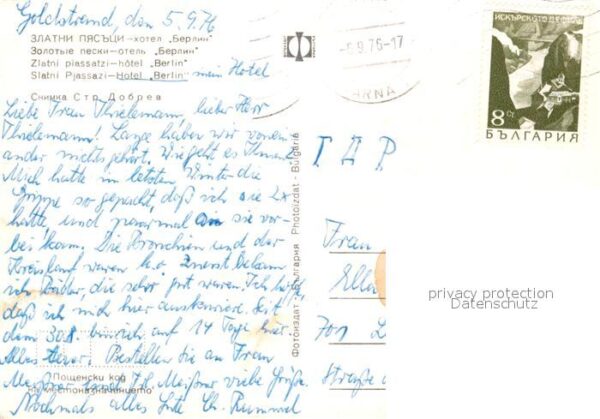 Goldstrand, den 5.9.76
ЗЛАТНИ ПЯСЪЦИ—хотел „Берлин"
Золотые пески—отель „Берлин"
Zlatni piassatzi—hôtel „Berlin"
Slatni Pjassazi—Hotel „Berlin" mein Hotel
Снимка Стр. Добрев
Liebe Frau Thielemann, lieber Herr
Thielemann! Lange haben wir vonein-
ander nichts gehört. Wie geht es Ihnen?
Mich hatte im letzten Winter die
Grippe so gepackt, daß ich sie 2x
hatte und paarmal an sie vor-
bei kam. Die Bronchien und der
Kreislauf waren k.o. Zuerst bekam
ich Bäder, die sehr gut waren. Ich hoffe,
daß ich mich hier auskuriere. Seit
dem 30.8. bin ich auf 14 Tage hier.
Alles teuer. Bestellen Sie an Frau
Meißner und Frl. Meißner viele Grüße.
Nochmals alles Gute Ch. Rummel
Пощенски код
на местоназначението
Фотоиздат - България Photoizdat - Bulgarie
6.9.76-17
ИСКЪРСКОТО ДЕФИЛЕ
8 Ст
БЪЛГАРИЯ
ГДР
Frau
Ella
701 L
Straße d
privacy protection
Datenschutz